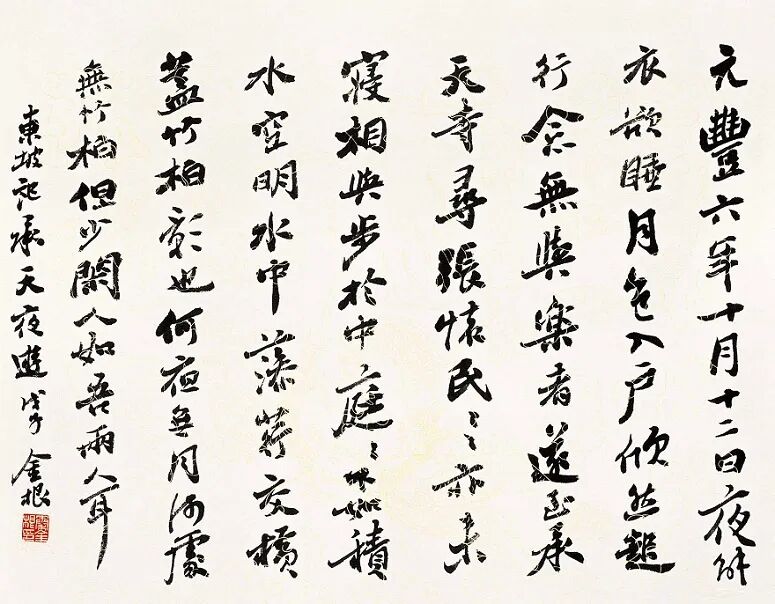 元豐六年十月十二日夜解
衣欲睡月色入戶欣然起
行念無與樂者遂至承
天寺尋張懷民〻〻亦未
寢相與步於中庭〻下如積
水空明水中藻荇交橫
蓋竹柏影也何夜無月何處
無竹柏但少閑人如吾兩人耳
東坡記承天夜遊 戊子 金根